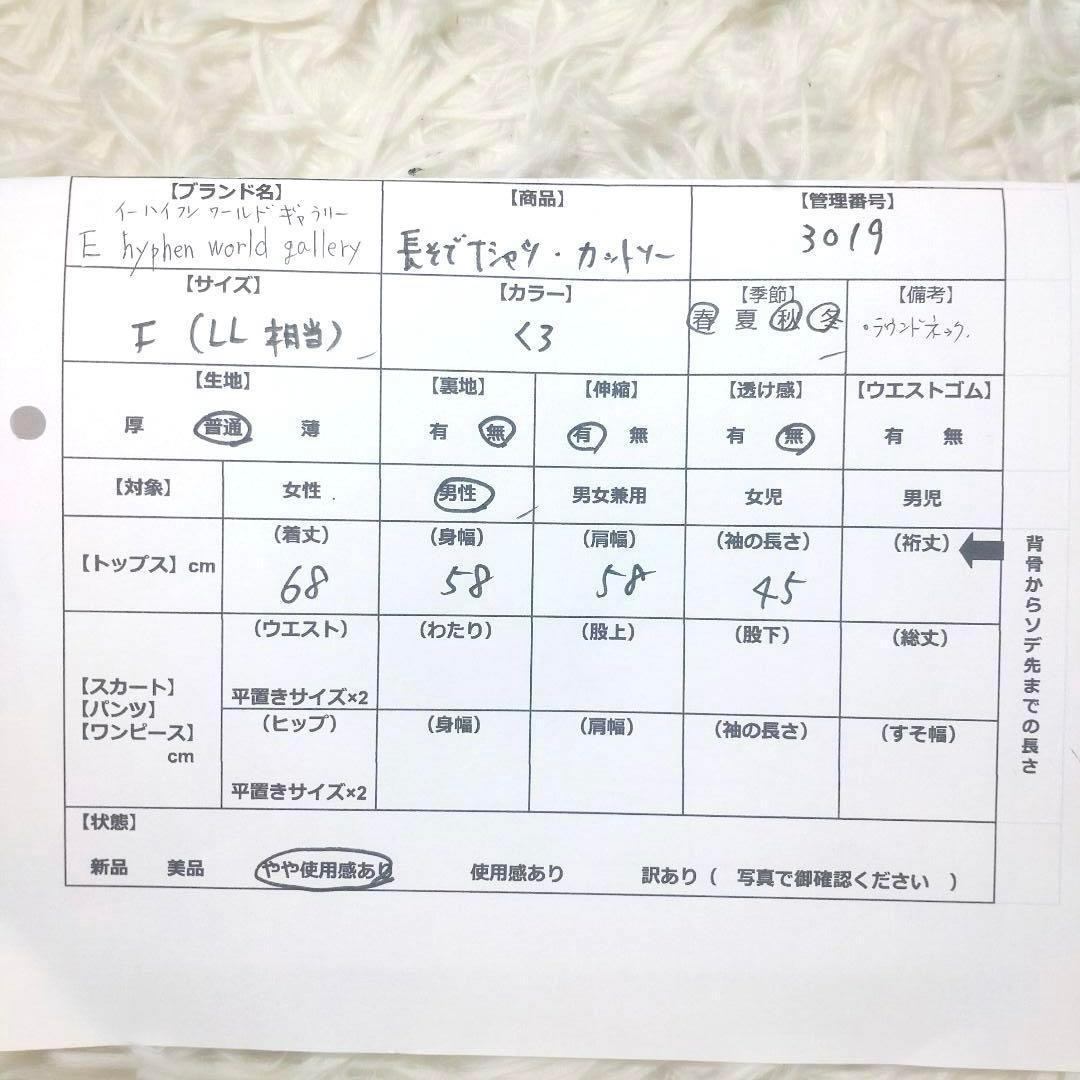 【ブランド名】
イーハイフン ワールド ギャラリー
E hyphen world gallery
【商品】
長そでTシャツ・カットソー
【管理番号】
3019
【サイズ】
F (LL 相当)
【カラー】
くろ
【季節】
春 夏 秋 冬
【備考】
・ラウンドネック.
【生地】
厚 普通 薄
【裏地】
有 無
【伸縮】
有 無
【透け感】
有 無
【ウエストゴム】
有 無
【対象】
女性
男性
男女兼用
女児
男児
【トップス】cm
(着丈)
68
(身幅)
58
(肩幅)
58
(袖の長さ)
45
(裄丈)
背骨からソデ先までの長さ
【スカート】
【パンツ】
【ワンピース】
cm
(ウエスト)
平置きサイズ×2
(わたり)
(股上)
(股下)
(総丈)
(ヒップ)
平置きサイズ×2
(身幅)
(肩幅)
(袖の長さ)
(すそ幅)
【状態】
新品 美品 やや使用感あり 使用感あり 訳あり ( 写真で御確認ください )